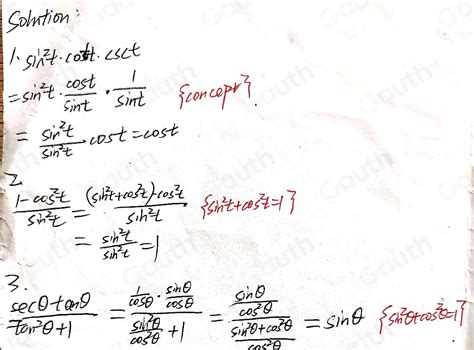 Solution:
1. sin²t · cott · csct
= sin²t · cost/sint · 1/sint {concept}
= sin²t/sin²t · cost = cost
2.
1-cos²t/sin²t = (sin²t+cos²t)-cos²t/sin²t {sin²t+cos²t=1}
= sin²t/sin²t = 1
3.
secθ·tanθ/tan²θ+1 = 1/cosθ · sinθ/cosθ / sin²θ/cos²θ + 1 = sinθ/cos²θ / sin²θ+cos²θ/cos²θ = sinθ {sin²θ+cos²θ=1}